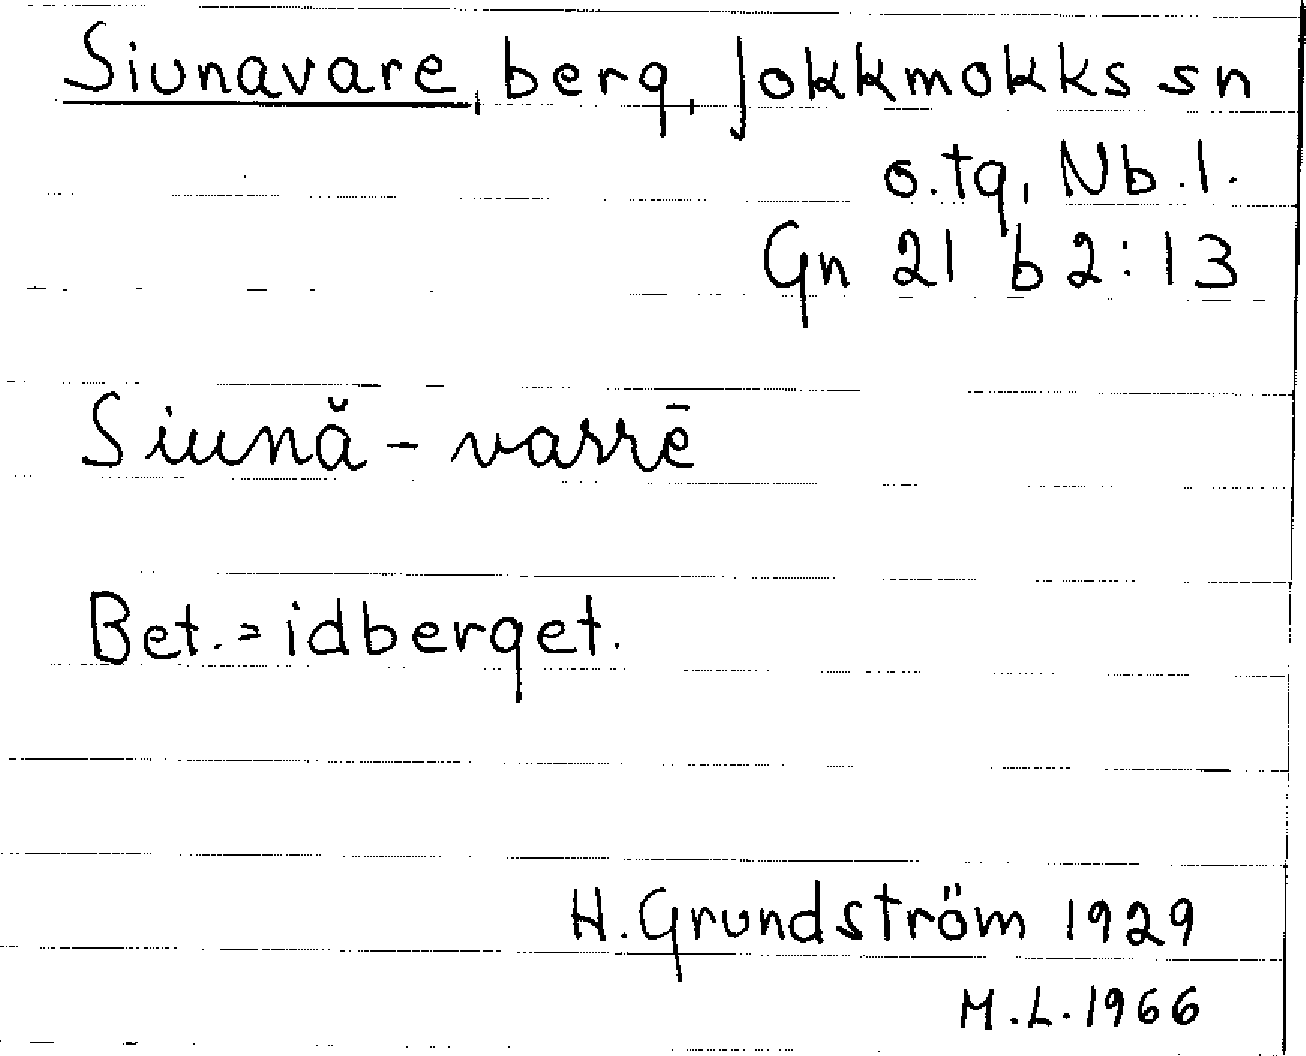 Siunavare, berg, Jokkmokks sn
o.tg, Nb.l.
Gn 21 b 2:13
Siună - varrē
Bet. = idberget.
H. Grundström 1929
M.L. 1966